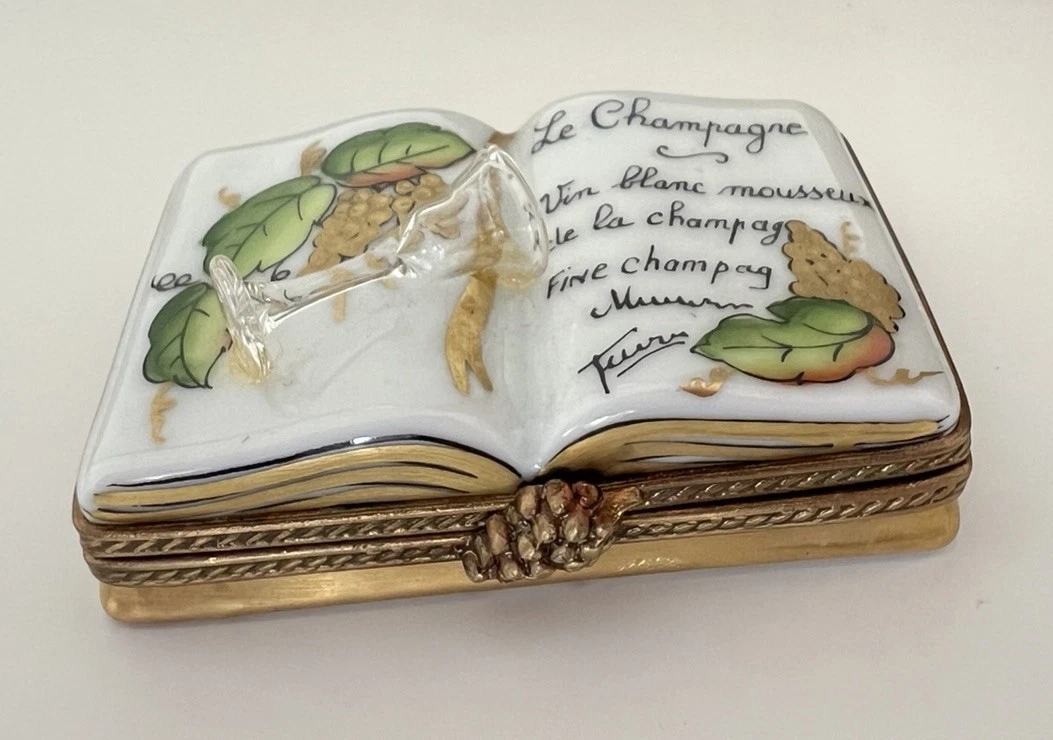 Le Champagne
Vin blanc mousseux
de la champag
Fine champag